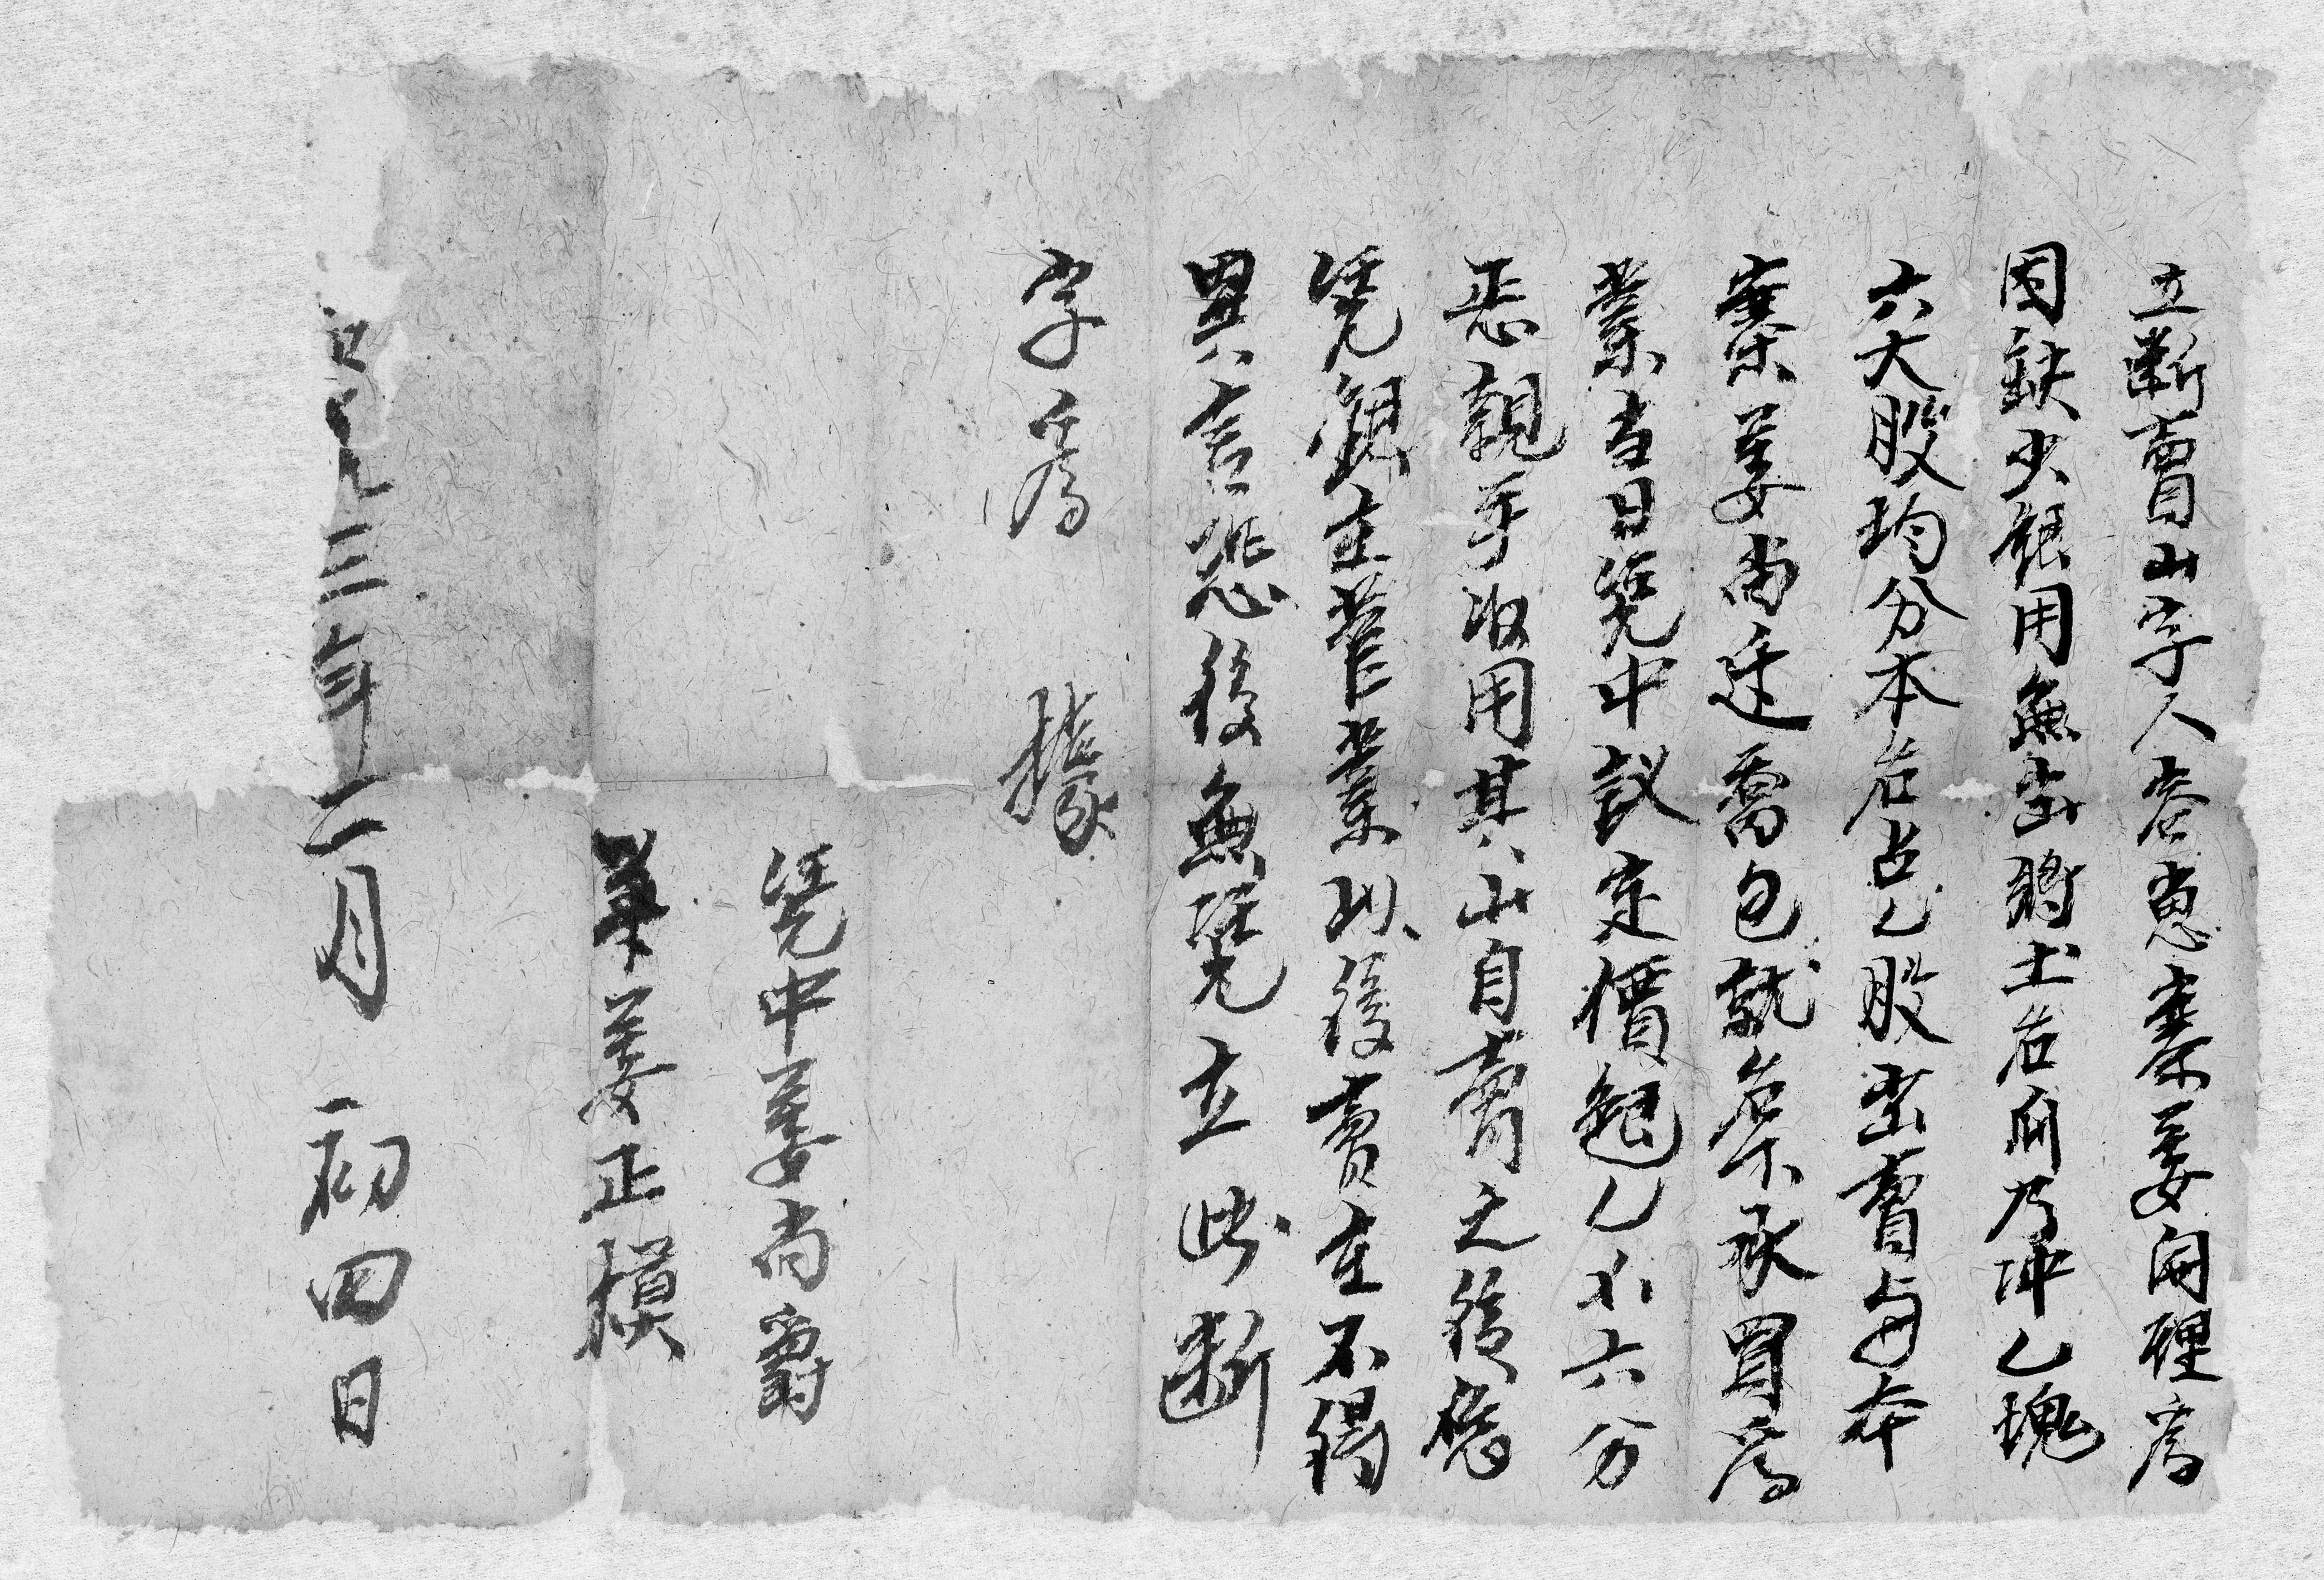 立斷賣山字人岩崽寨姜開理為
因缺少銀用無出將土名冉乃冲乙塊
六大股均分本名占乙股出賣与本
寨姜尚廷喬包就名下承買為
業当日凴中議定價銀乙小六分
悉親手收用其山自賣之後憑
凴銀主管業以後賣主不得
異言恐後無凴立此斷
字為據
凴中姜尚爵
筆姜正模
三年二月初四日